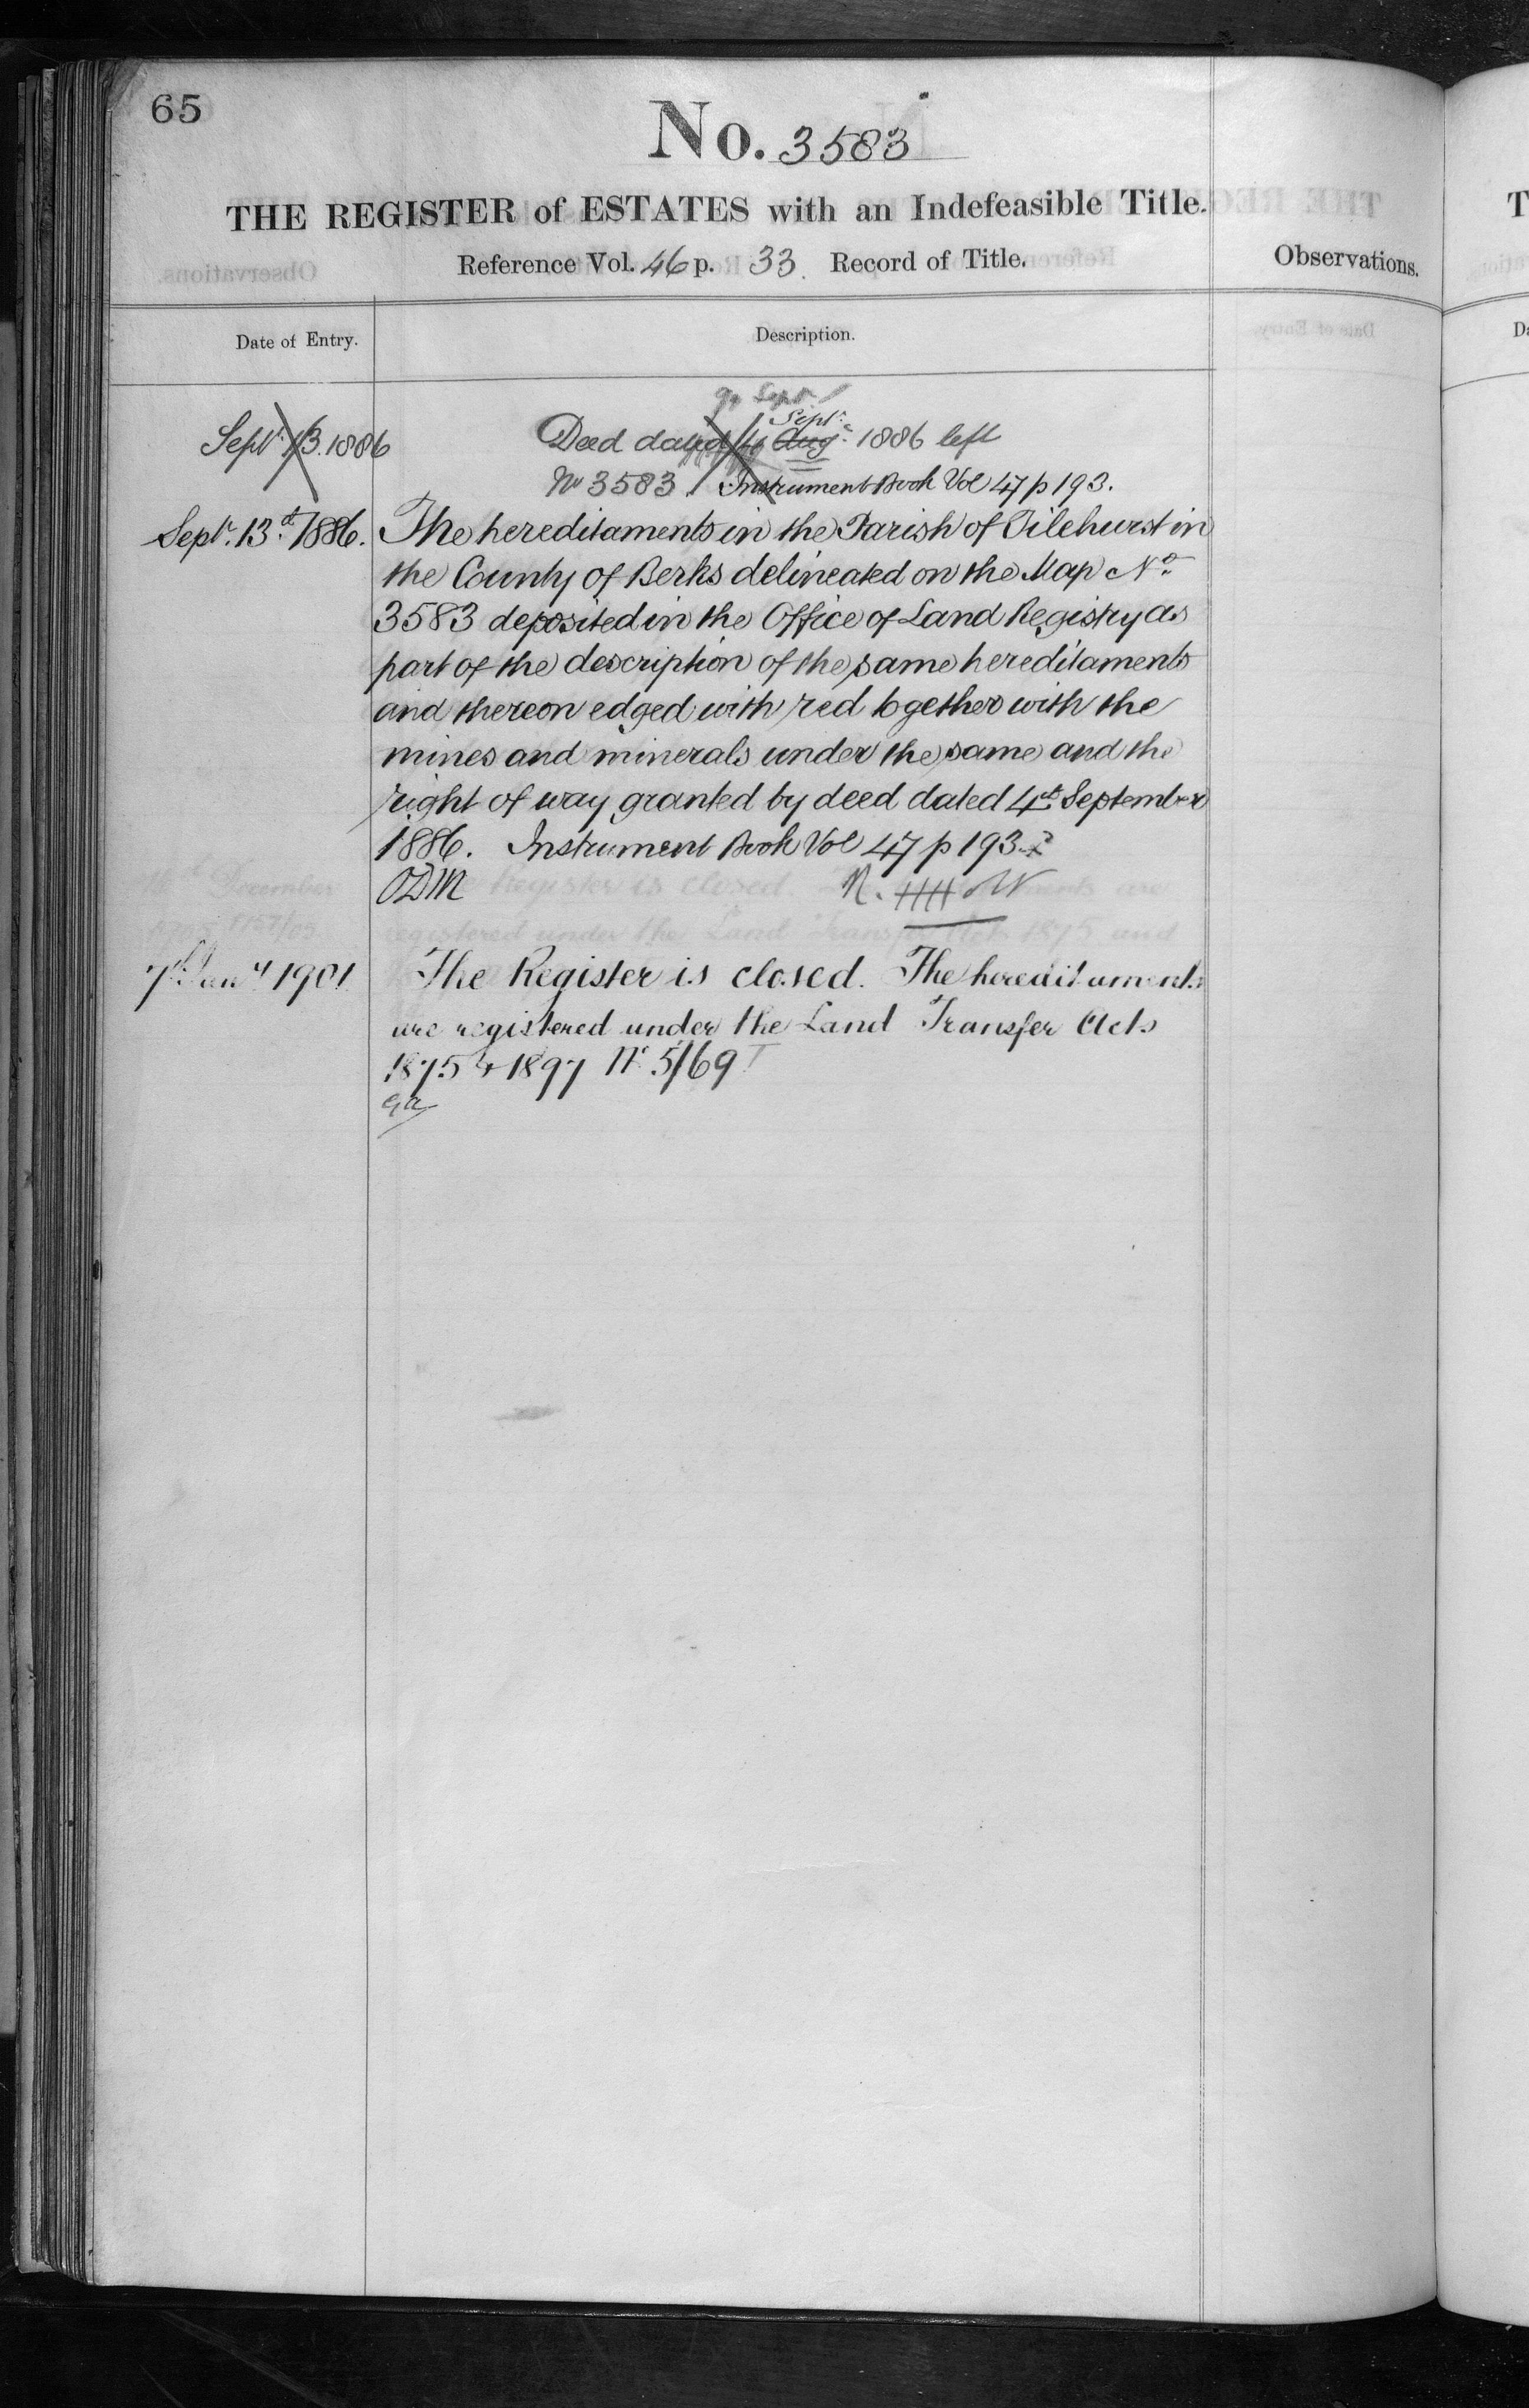 65
No. 3583
THE REGISTER of ESTATES with an Indefeasible Title.
Reference Vol. 46 p. 33. Record of Title.
Observations.
Date of Entry.
Description.
Sept
Sept. 13. 1886 Deed dated 4 Aug. Sept. 1886 left
No 3583. Instrument Book Vol 47 p 193.
Sept. 13th 1886. The hereditaments in the Parish of Tilehurst in
the County of Berks delineated on the Map No.
3583 deposited in the Office of Land Registry as
part of the description of the same hereditaments
and thereon edged with red together with the
mines and minerals under the same and the
right of way granted by deed dated 4th September
1886. Instrument Book Vol 47 p 193
ODM
7th Jany 1901 The Register is closed. The hereditaments
are registered under the Land Transfer Acts
1875 & 1897 No 5169